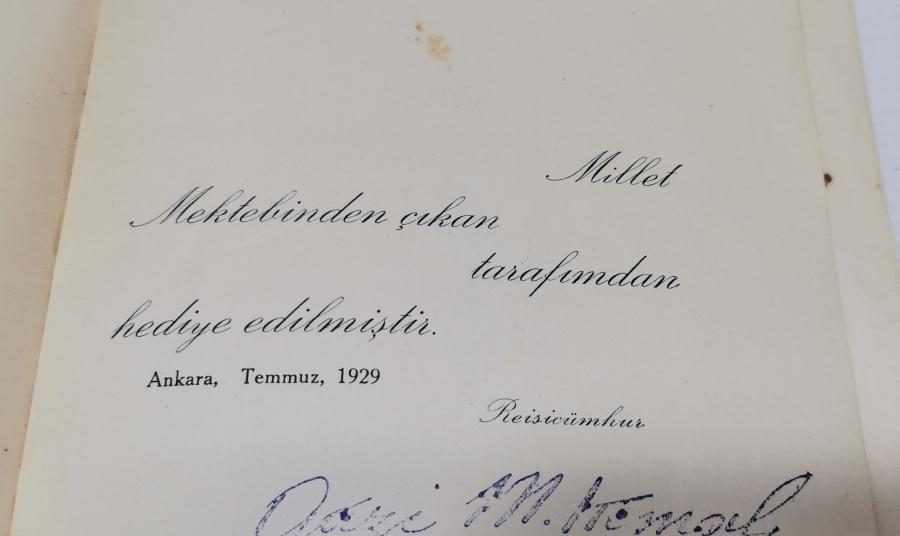 Millet
Mektebinden çıkan
tarafımdan
hediye edilmiştir.
Ankara, Temmuz, 1929
Reisicümhur
Gazi M. Kemal